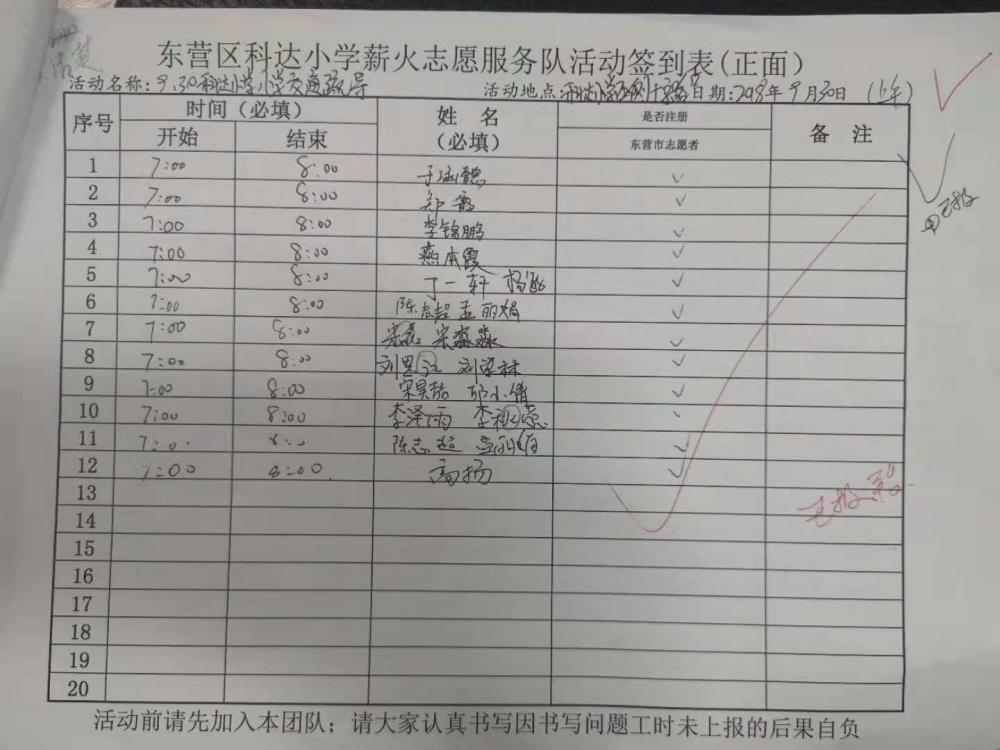 东营区科达小学薪火志愿服务队活动签到表(正面)
活动名称: 9.30科达小学小学交通疏导 活动地点: 日期: 2018年9月30日 (上午)
序号 时间(必填) 姓名(必填) 是否注册 备注
开始 结束 东营市志愿者
1 7:00 8:00 于涵懿 ✓
2 7:00 8:00 郭 ✓
3 7:00 8:00 李锦鹏 ✓
4 7:00 8:00 燕本霞 ✓
5 7:00 8:00 丁一轩 杨 ✓
6 7:00 8:00 陈志超 孟丽娟 ✓
7 7:00 8:00 宋磊 宋淼淼 ✓
8 7:00 8:00 刘 刘 林 ✓
9 7:00 8:00 宋昊喆 邱小倩 ✓
10 7:00 8:00 李泽雨 李 蕊
11 7:00 8:00 陈志超 ✓
12 7:00 8:00 高扬 ✓
13
14
15
16
17
18
19
20
已报
已报
活动前请先加入本团队；请大家认真书写因书写问题工时未上报的后果自负